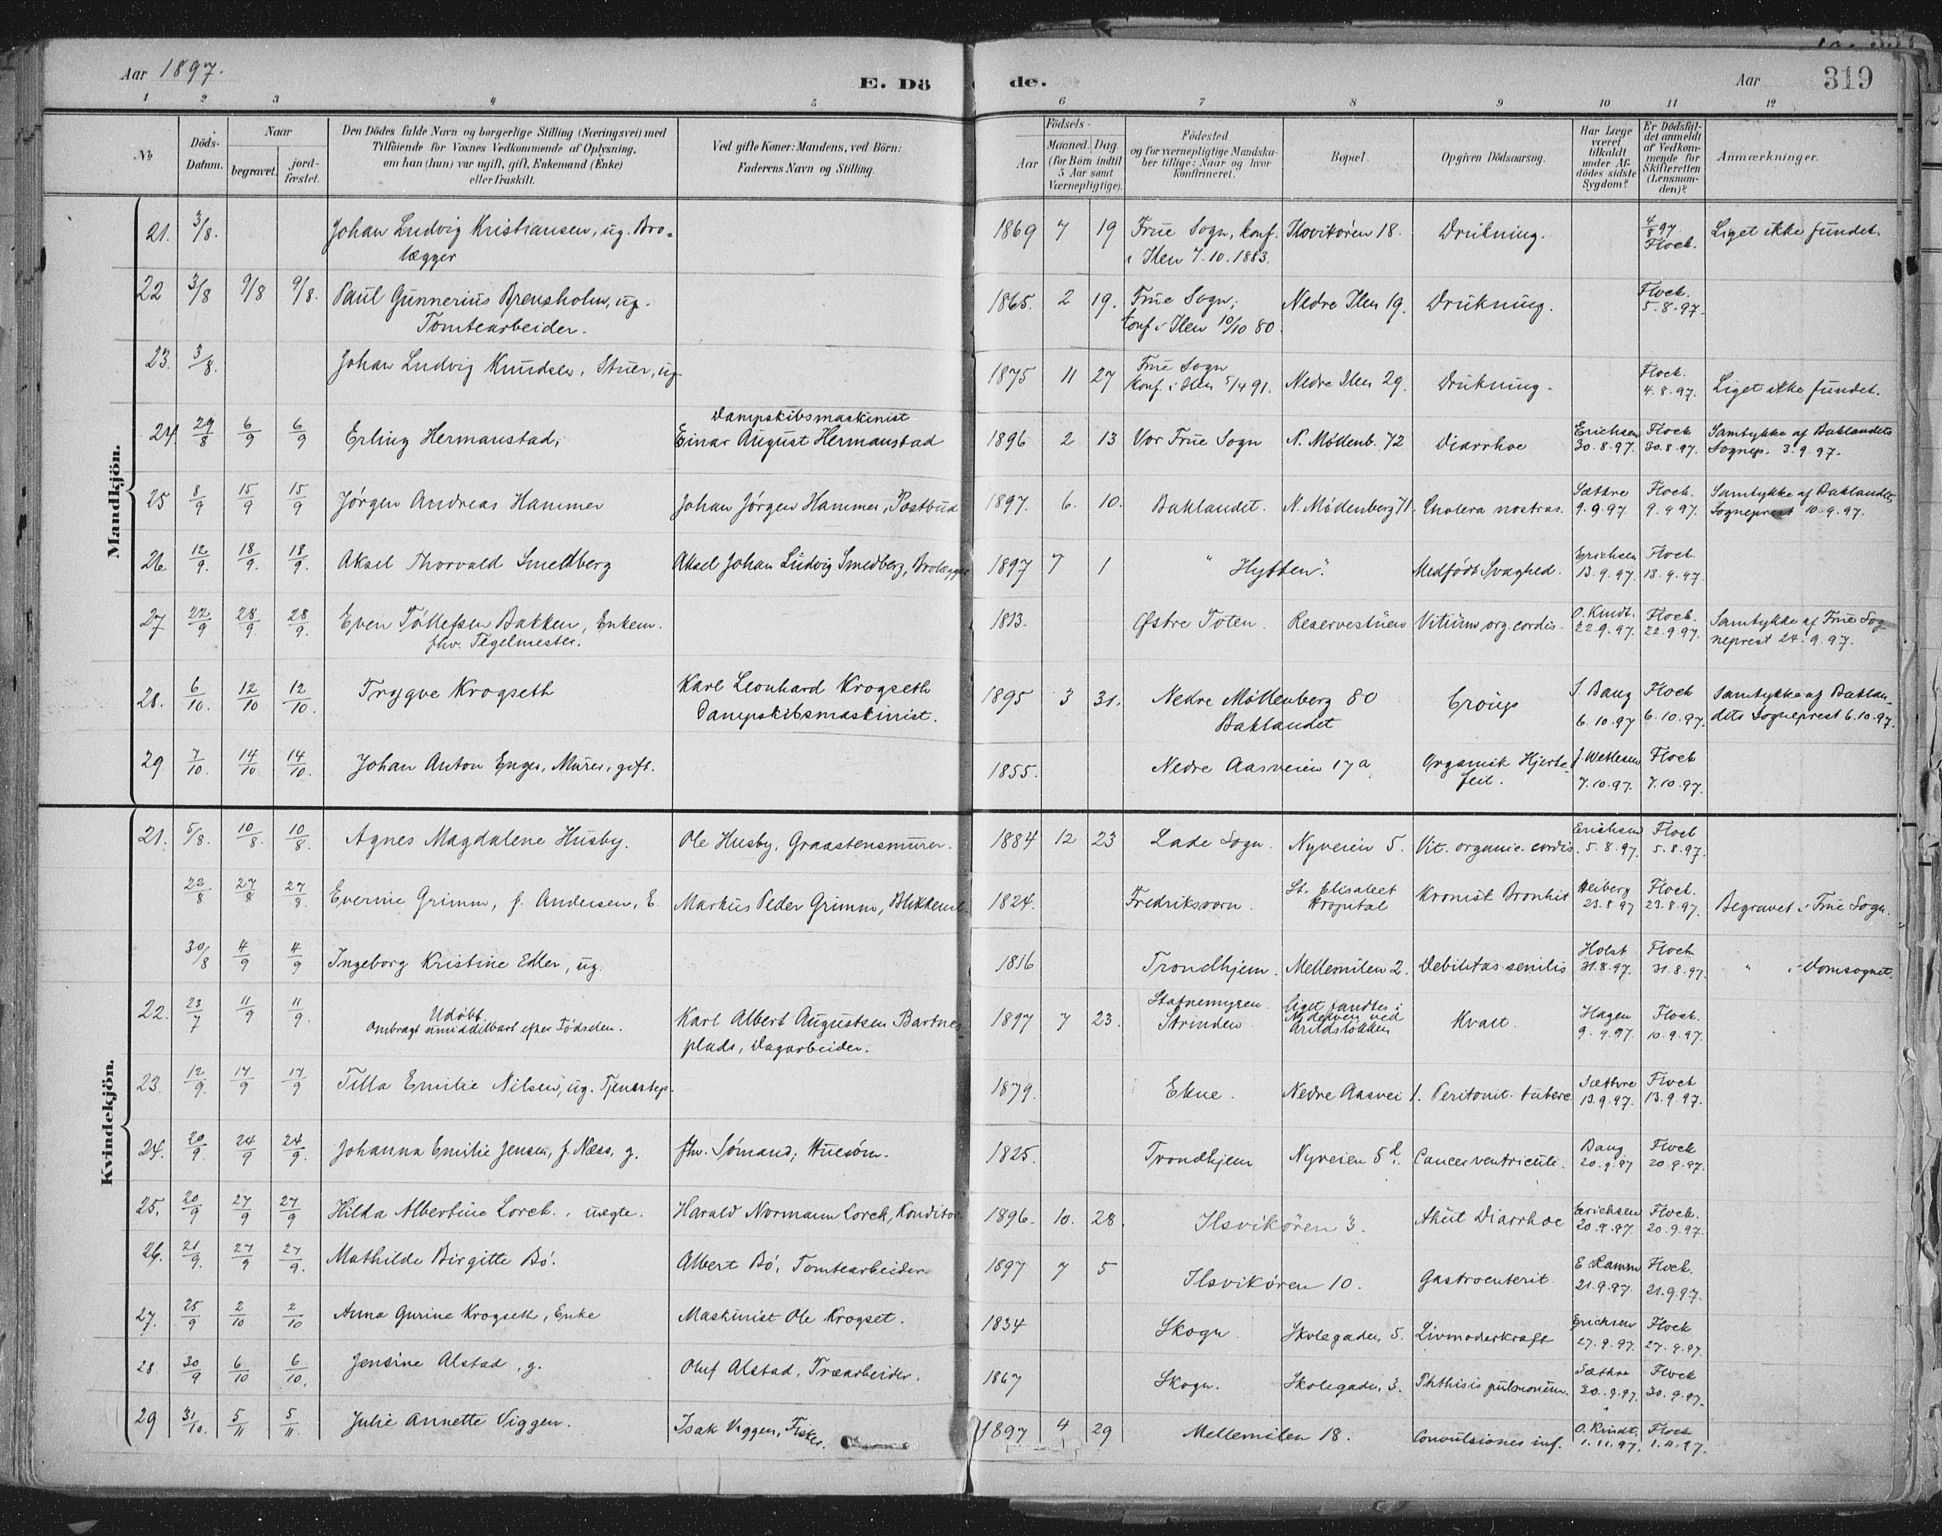 Aar 1897. E. Dö de. Aar 319
1 2 3 4 5 6 7 8 9 10 11 12
No
Döds-Datum.
Naar
begravet.
jordfæstet.
Den Dödes fulde Navn og borgerlige Stilling (Næringsvei) med
Tilföiende for Voxnes Vedkommende af Oplysning,
om han (hun) var ugift, gift, Enkemand (Enke)
eller fraskilt.
Ved gifte Koner: Mandens, ved Börn:
Faderens Navn og Stilling.
Födsels-
Aar
Maaned. Dag.
(for Börn indtil
5 Aar samt
Værnepligtige).
Födested
og for værnepligtige Mandskaber tillige: Naar og hvor
konfirmeret.
Bopæl.
Opgiven Dödsaarsag.
Har Læge
været
tilkaldt
under Afdödes sidste
Sygdom?
Er Dödsfaldet anmeldt
af Vedkommende for
Skifteretten
(Lensmanden)?
Anmærkninger.
Mandkjön.
21. 3/8. Johan Ludvig Kristiansen, ug. Brolægger 1869 7 19 Frue Sogn, konf. i Ilen 7.10.1883. Ilsvikören 18. Drukning. 4/8 97 Flock. Liget ikke fundet.
22 3/8 9/8 9/8. Paul Gunnerius Brensholm, ug. Tomtearbeider. 1865. 2 19. Frue Sogn; konf. i Ilen 10/10 80 Nedre Ilen 19. Drukning. Flock. 5.8.97.
23. 3/8. Johan Ludvig Knudsen, Stuer, ug. 1875 11 27 Frue Sogn konf. i Ilen 5/4 91. Nedre Ilen 29. Drukning. Flock. 4.8.97. Liget ikke fundet.
24. 29/8 6/9 6/9 Erling Hermanstad, Dampskibsmaskinist Einar August Hermanstad 1896 2 13 Vor Frue Sogn N. Möllenb. 72 Diarrhoe Erichsen 30.8.97. Flock 30.8.97. Samtykke af Baklandets Sognep. 3.9.97.
25 8/9 15/9 15/9 Jørgen Andreas Hammer Johan Jørgen Hammer, Postbud 1897. 6. 10. Baklandet. N. Möllenberg 71. Cholera nostras. Sættre 9.9.97. Flock. 9.9.97. Samtykke af Baklandets Sogneprest 10.9.97.
26 12/9. 18/9. 18/9. Aksel Thorvald Smedberg Aksel Johan Ludvig Smedberg, Brolægger 1897 7 1 "Hytten". Medfödt Svaghed. Erichsen 13.9.97. Flock 13.9.97.
27 22/9 28/9. 28/9. Even Tollefsen Bakken, Enkem. fhv. Tegelmester. 1813. Østre Toten. Reservestuen Vitium org. cordis. O. Kindt. 22.9.97. Flock. 22.9.97. Samtykke af Frue Sogneprest 24.9.97.
28. 6/10. 12/10 12/10. Trygve Krogseth Karl Leonhard Krogseth Dampskibsmaskinist. 1895 3 31. Nedre Möllenberg 80 Baklandet Croup Bang 6.10.97 Flock 6.10.97. Samtykke af Baklandets Sogneprest 6.10.97.
29. 7/10. 14/10 14/10. Johan Anton Enger, Murer, gift. 1855. Nedre Aasveien 17a Organisk Hjertefeil. J. Wetlesen 7.10.97. Flock 7.10.97.
Kvindekjön.
21. 5/8. 10/8. 10/8. Agnes Magdalene Husby. Ole Husby, Graastensmurer. 1884 12 23 Lade Sogn. Nyveien 5. Vit. organic. cordis. Erichsen 5.8.97. Flock 5.8.97.
22/8 27/8 27/8. Everine Grimm, f. Andersen, E. Markus Peder Grimm, Blikkensl. 1824. Fredriksværn. St. Elisabet Hospital Kronisk Bronkit Heiberg 23.8.97 Flock. 23.8.97. Begravet i Frue Sogn.
30/8 4/9 4/9 Ingeborg Kristine Eller, ug. 1816 Trondhjem. Mellemilen 2. Debilitas senilis Holst 31.8.97. Flock 31.8.97. " i Domsognet.
22. 23/7 11/9 11/9. Udöbt. Ombragt umiddelbart efter Födselen. Karl Albert Augustsen Bartnesplads, Dagarbeider. 1897 7 23. Stavnemyren. Strinden Liget fandtes i Nidelven ved Arildslökken Kvalt. Hagen 9.9.97. Flock. 10.9.97.
23 12/9. 17/9 17/9 Tilla Emilie Nilsen, ug. Tjenestep. 1879. Ekne. Nedre Aasvei 1. Peritonit. tuberc Sættre 13.9.97. Flock 13.9.97.
24. 20/9. 24/9 24/9. Johanna Emilie Jensen, f. Næss, g. fhv. Sömand, 1825. Trondhjem Nyveien 5d. Cancer ventriculi. Bang 20.9.97 Flock 20.9.97.
25. 20/9 27/9 27/9 Hilda Albertine Lorck, uægte. Harald Normann Lorck, Konditor. 1896. 10. 28. Ilsvikören 3. Akut Diarrhoe Erichsen 20.9.97. Flock. 20.9.97.
26. 21/9. 27/9 27/9. Mathilde Birgitte Bö. Albert Bö, Tomtearbeider 1897 7 5 Ilsvikören 10. Gastroenterit. E Ramm 21.9.97. Flock. 21.9.97.
27. 25/9 2/10 2/10 Anna Gurine Krogseth, Enke Maskinist Ole Krogset. 1834 Skogn. Skolegaden 5. Livmoderkræft Erichsen 27.9.97. Flock 27.9.97.
28 30/9 6/10 6/10. Jensine Alstad, g. Oluf Alstad, Træarbeider. 1867 Skogn. Skolegaden 3. Phthisis pulmonum. Sættre 30.9.97. Flock 30.9.97.
29 31/10. 5/11 5/11. Julie Annette Viggen. Isak Viggen, Fisker. 1897 4 29 Mellemilen 18. Convulsiones inf. O. Kindt. 1.11.97. Flock 1.11.97.